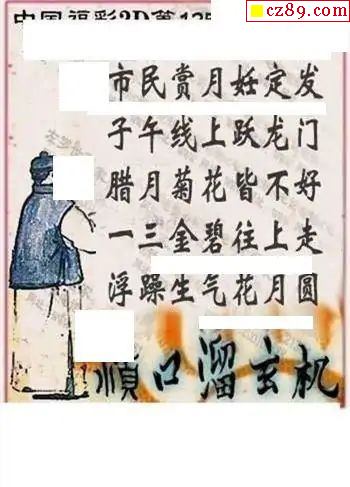 cz89.com
中国福彩3D第135
市民赏月妊定发
子午线上跃龙门
腊月菊花皆不好
一三金碧往上走
浮躁生气花月圆
顺口溜玄机